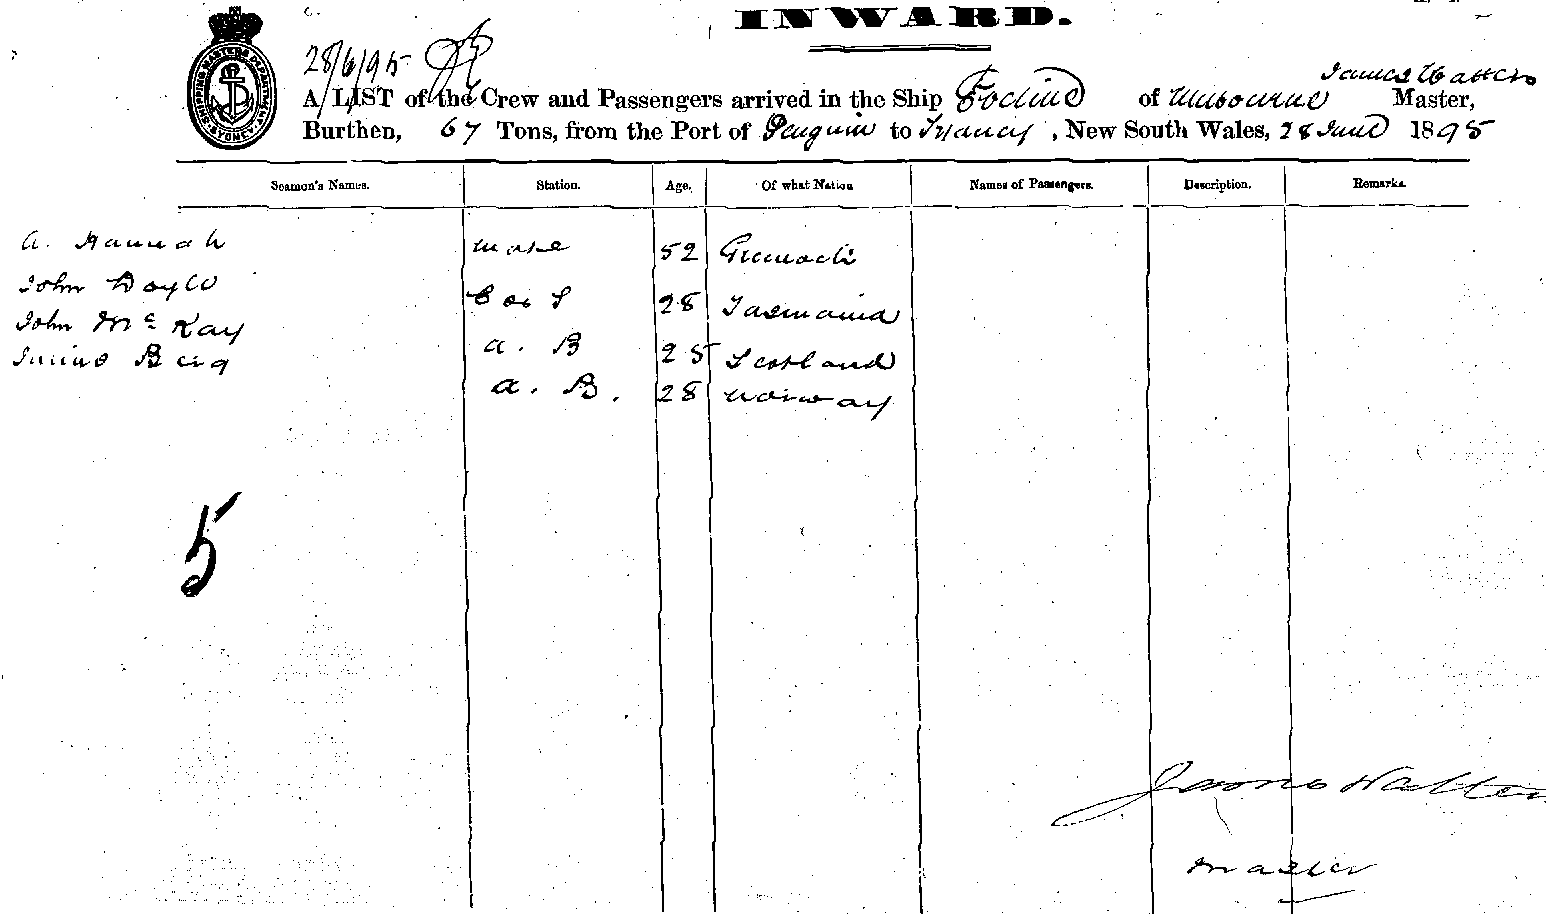 INWARD.
28/6/95
James Watters
A LIST of the Crew and Passengers arrived in the Ship of Melbourne Master,
Burthen, 67 Tons, from the Port of Penguin to Sydney, New South Wales, 28 June 1895
SHIPPING MASTERS DEPARTMENT SYDNEY
Seamen's Names. Station. Age. Of what Nation Names of Passengers. Description. Remarks.
A. Hannah mate 52 Greenock
John Doyle C & S 28 Tasmania
John McKay A. B 25 Scotland
Berg A. B. 28 Norway
5
James Watters
Master